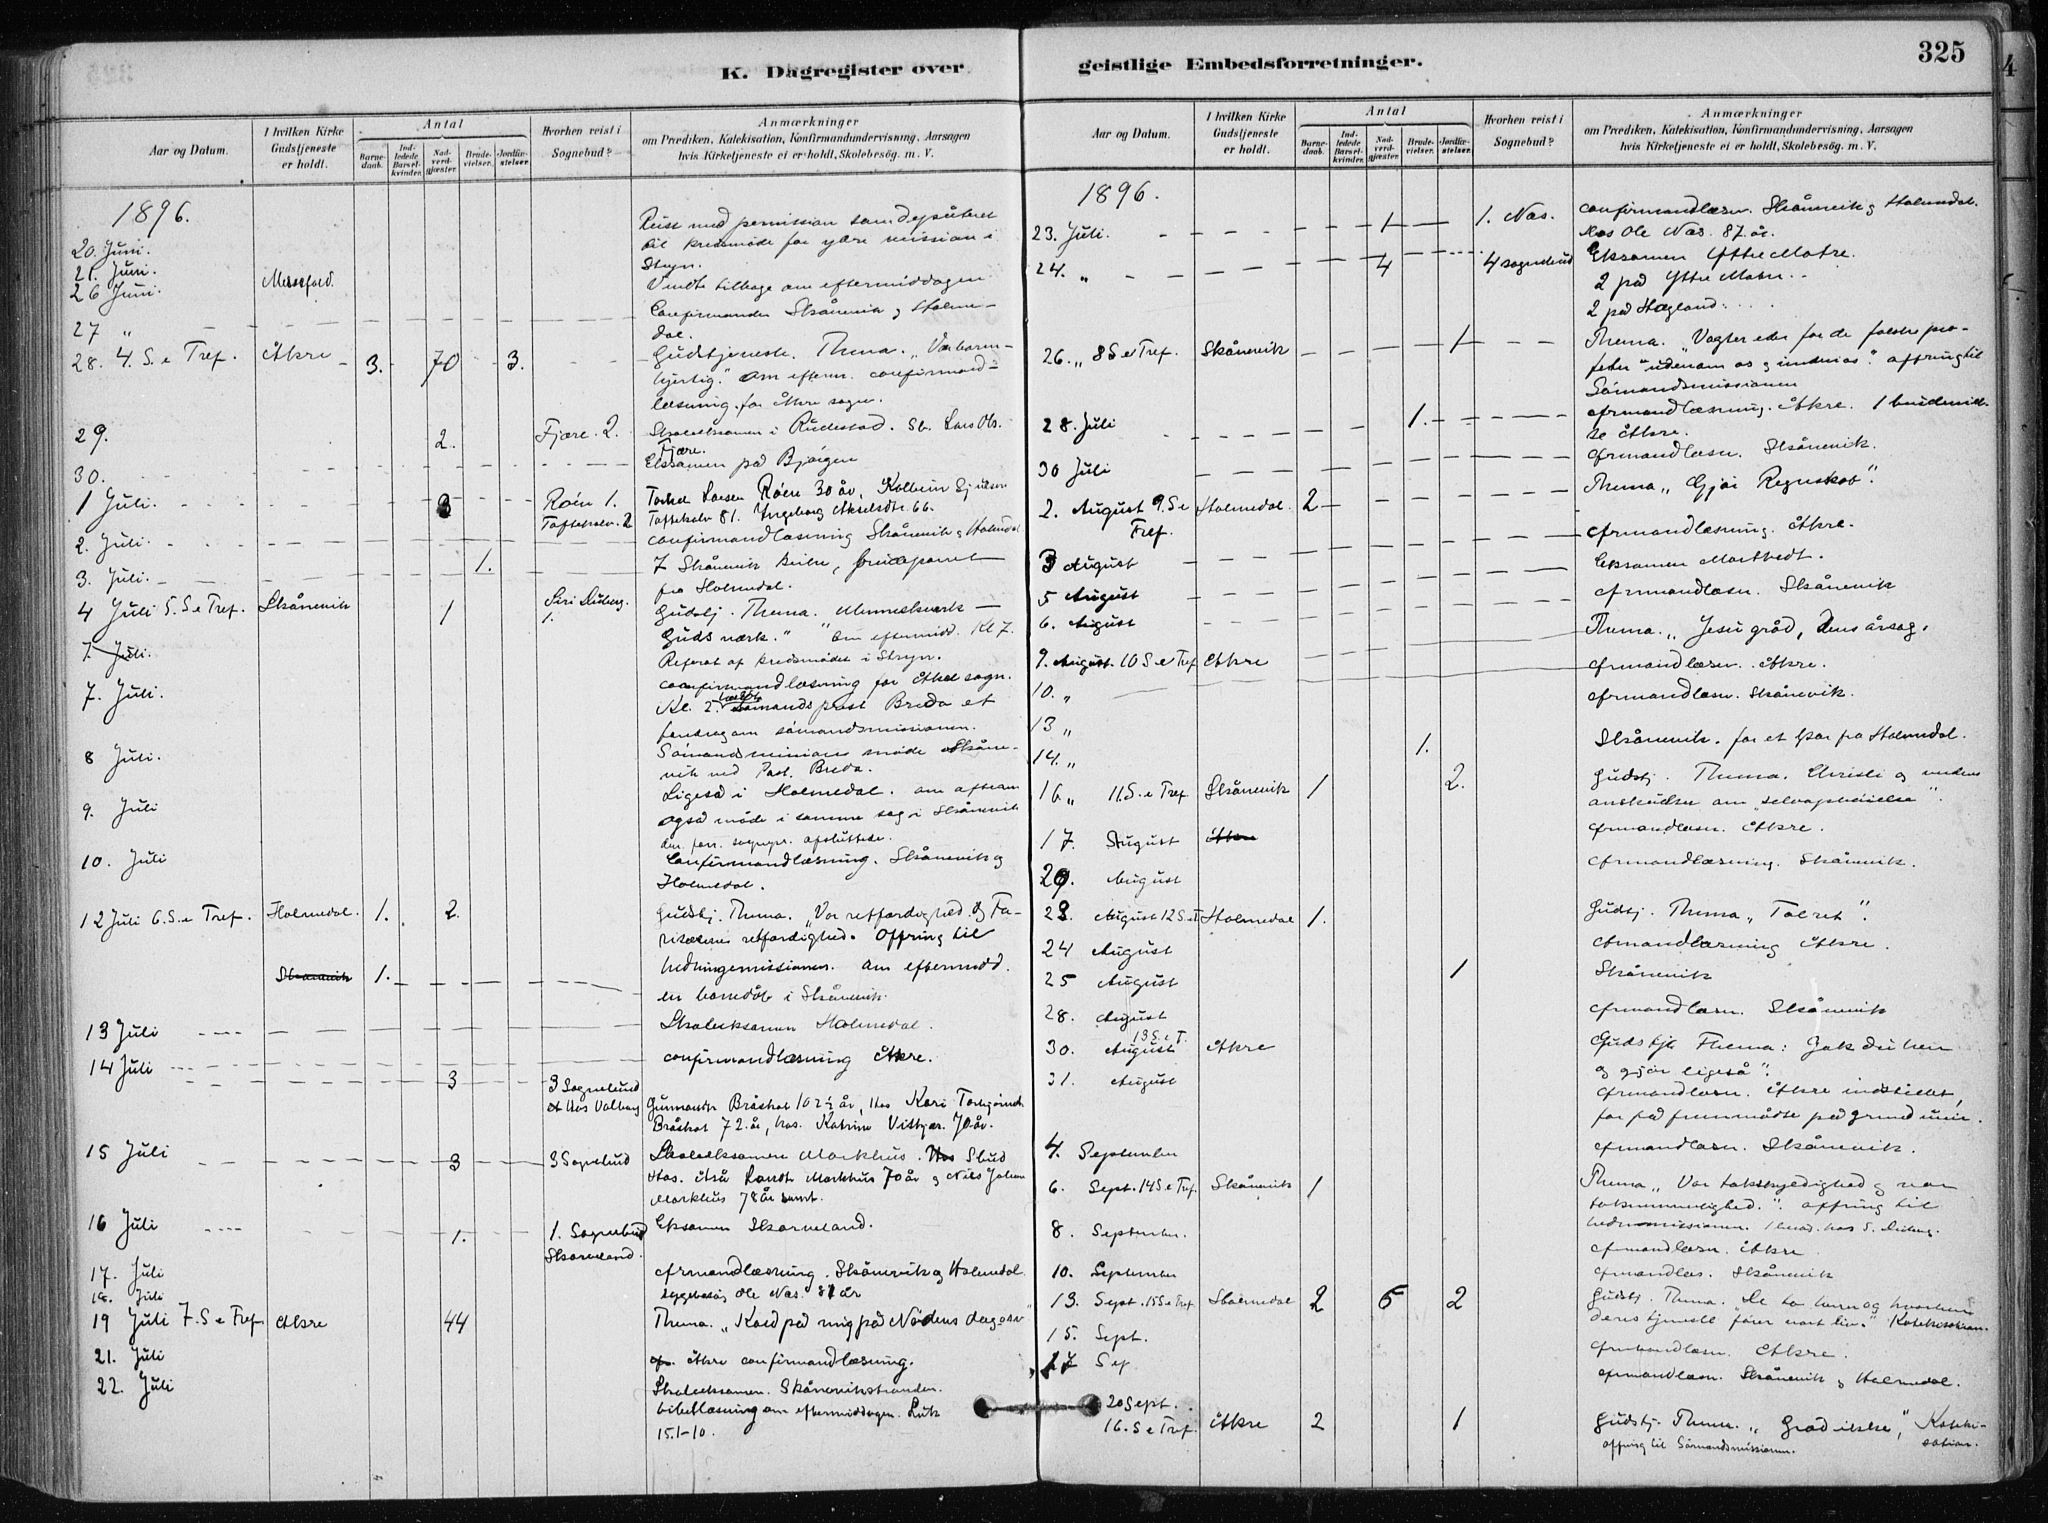 325
K. Dagregister over
geistlige Embedsforretninger.
Aar og Datum.
I hvilken Kirke Gudstjeneste er holdt.
Antal
Barne-daab.
Ind-ledede Barsel-kvinder.
Nad-verd-gjæster.
Brude-vielser.
Jordfæ-stelser.
Hvorhen reist i Sognebud?
Anmærkninger
om Prædiken, Katekisation, Konfirmandundervisning, Aarsagen
hvis Kirketjeneste ei er holdt, Skolebesög. m. V.
1896.
20. Juni. Reist med permission som deputeret
til kredsmøde for ydre mission i
21. Juni. Stryn.
26 Juni. Vendte tilbage om eftermiddagen
27 " Confirmander Skånevik og Holme-
dal.
28. 4. S. e Tref. Åkre 3. 70 3. Gudstjeneste. Thema. "Vær barm-
hjertig." Om efterm. confirmand-
læsning for Åkre sogn.
29. 2. Fjære. 2. Skoleeksamen i Rudestad. Sb. Lars Ols.
Fjære.
30. Eksamen på Bjørgen
1 Juli. 3 Røen 1. Larsen Røen 30 år,
2 81. Ingeborg Akselsdtr. 66.
2. Juli. confirmandlæsning Skånevik og Holmedal
3. Juli. 1. I Skånevik kirke, brudeparret
fra Holmedal.
4 Juli 5. S. e Tref. Skånevik 1 Siri 1. Gudstj. Thema. "Menneskeværk —
Guds værk." Om eftermidd. Kl 7.
7. Juli. Referat af kredsmødet i Stryn.
7. Juli. confirmandlæsning for Åkre sogn.
Kl. 2. holdt sømandsprest Breda et
foredrag om sømandsmissionen.
8 Juli. Sømandsmissions møde Skåne-
vik ved Past. Breda.
9. Juli Ligeså i Holmedal. om aftenen
også møde i samme sag i Skånevik
10. Juli Confirmandlæsning. Skånevik og
Holmedal.
12 Juli 6. S. e Tref. Holmedal. 1. 2. Gudstj. Thema. "Vor retfærdighed og Fa-
risæernes retfærdighed. Offring til
hedningemissionen. Om eftermidd.
Skånevik 1. en barnedåb i Skånevik.
13 Juli Skoleeksamen Holmedal.
14 Juli confirmandlæsning Åkre.
3 3 Sognebud
Bråskot 72 år, hos. Katrine 70 år.
15 Juli 3 3 Sognebud Skoleeksamen Markhus.
Markhus 70 år og Nils Johan
Markhus 78 år
16 Juli 1. 1. Sognebud Eksamen Skorveland.
Skorveland.
17. Juli cfrmandlæsning. Skånevik og Holmedal.
18. Juli sygebesøg Ole Næs. 87 år
19 Juli 7. S. e Tref. Åkre 44 Thema. "Kald på mig på Nødens dag osv"
21. Juli Åkre confirmandlæsning.
22. Juli Skoleeksamen. Skånevikstranden.
bibellæsning om eftermiddagen. Luk
15.1-10.
Aar og Datum.
I hvilken Kirke Gudstjeneste er holdt.
Antal
Barne-daab.
Ind-ledede Barsel-kvinder.
Nad-verd-gjæster.
Brude-vielser.
Jordfæ-stelser.
Hvorhen reist i Sognebud?
Anmærkninger
om Prædiken, Katekisation, Konfirmandundervisning, Aarsagen
hvis Kirketjeneste ei er holdt, Skolebesög. m. V.
1896.
23. Juli. 1 1. Næs. confirmandlæsn. Skånevik og Holmedal.
Hos Ole Næs. 87 år.
24. " 4 4 sognebud Eksamen Ytre Matre.
2 på Ytre Matre.
2 på Hægland.
26. " 8 S e Tref. Skånevik 1 Thema. "Vogter eder for de falske pro-
feter "udenom os og indeni os". offring til
Sømandsmissionen
28. Juli 1. cfrmandlæsning. Åkre. 1 brudeviel-
se Åkre.
30 Juli cfrmandlæsn. Skånevik.
2. August 9. S e Tref. Holmedal. 2 Thema "Gjør Regnskab".
3 August cfrmandlæsning. Åkre.
5 August Eksamen
6. August cfrmandlæsn. Skånevik
9. August. 10 S e Tref Åkre Thema. "Jesu gråd, dens årsag.
10. " cfrmandlæsn. Åkre.
13 " cfrmandlæsn. Skånevik.
14. " 1. Skånevik. for et par fra Holmedal.
16 " 11. S. e Tref Skånevik 1 2. Gudstj. Thema. Christi og verdens
anskuelse om "selvophøielse".
17. August Åkre cfrmandlæsn. Åkre.
20. August cfrmandlæsning. Skånevik.
23. August 12 S. e T. Holmedal 1. Gudstj. Thema "Talret".
24 August cfrmandlæsning Åkre.
25 August 1 Skånevik
28. August cfrmandlæsn. Skånevik
30. August 13 S. e T. Åkre Gudstj. Thema: Gak du hen
og gjør ligeså".
31. August cfrmandlæsn. Åkre indstillet,
for få fremmødte på grund
4. September cfrmandlæsn. Skånevik.
6. Sept. 14 S. e Tref. Skånevik 1 Thema "Vor takskyldighed og vor
taknemmelighed." offring til
hedn.missionen.
8. September. cfrmandlæsn. Åkre
10. September cfrmandlæs. Skånevik
13. Sept. 15 S. e Tref Holmedal 2 6 2 Gudstj. Thema. "De to herrer og hvorhen
deres tjeneste fører vort liv." Katekisation.
15. Sept. cfrmandlæsn. Åkre.
17 Sep cfrmandlæsn. Skånevik og Holmedal.
20 Sept.
16. S e Tref. Åkre 2 1 Gudstj. Thema. "Gråd ikke," Kateki-
sation.
offring til Sømandsmissionen.